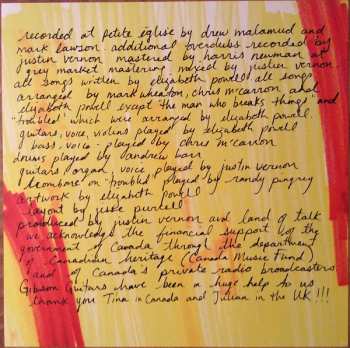 recorded at petite église by drew malamud and
mark lawson. additional overdubs recorded by
justin vernon mastered by harris newman at
grey market mastering mixed by justin vernon
all songs written by elizabeth powell all songs
arranged by mark wheaton, chris mccarron and
elizabeth powell except "the man who breaks things" and
"troubled" which were arranged by elizabeth powell
guitars, voice, violins played by elizabeth powell
bass, voice - played by chris mccarron
drums played by andrew barr
guitars organ, voice played by justin vernon
trombone on "troubled" played by randy pingrey
artwork by elizabeth powell
layout by jesse purcell
produced by justin vernon and land of talk
we acknowledge the financial support of the
government of Canada through the department
of Canadian heritage (Canada Music Fund)
and of Canada's private radio broadcasters
Gibson Guitars have been a huge help to us
thank you Tina in Canada and Julian in the UK!!!